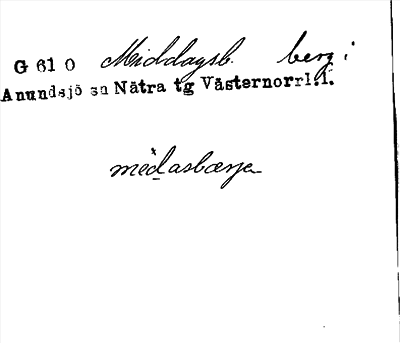 G 61 0 Middagsb. berg i
Anundsjö sn Nätra tg Västernorrl.l.
medasbærje